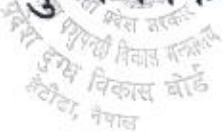 प्रदेश सरकार
पशुपन्छी विकास मन्त्रालय
प्रदेश दुग्ध विकास बोर्ड
हेटौंडा, नेपाल